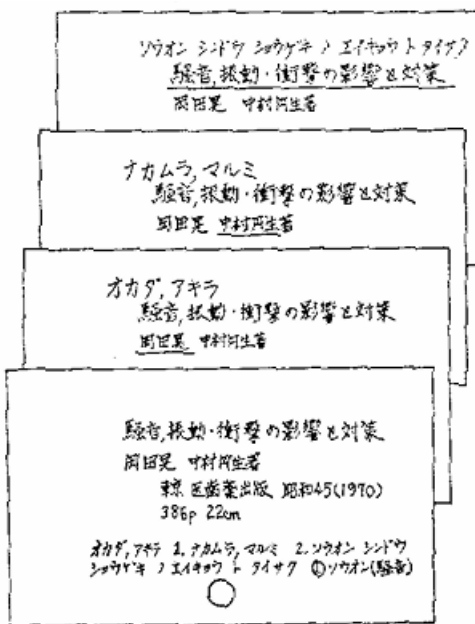 ソウオン シンドウ ショウゲキ ノ エイキョウ ト タイサク
騒音,振動・衝撃の影響と対策
岡田晃 中村円生著
ナカムラ,マルミ
騒音,振動・衝撃の影響と対策
岡田晃 中村円生著
オカダ,アキラ
騒音,振動・衝撃の影響と対策
岡田晃 中村円生著
騒音,振動・衝撃の影響と対策
岡田晃 中村円生著
東京 医歯薬出版 昭和45(1970)
386p 22cm
オカダ,アキラ 1.ナカムラ,マルミ 2.ソウオン シンドウ
ショウゲキ ノ エイキョウ ト タイサク ①ソウオン(騒音)